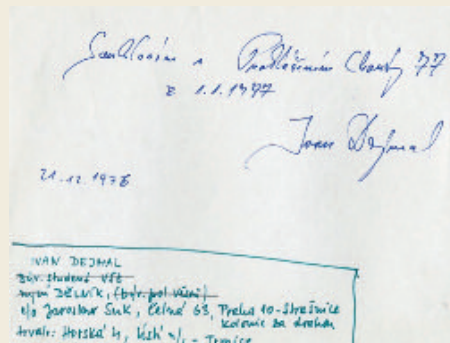 Souhlasím s Prohlášením Charty 77
z 1.1.1977
Ivan Dejmal
21.12.1976
IVAN DEJMAL
býv. student VŠZ
nyní DĚLNÍK, (býv. pol. vězni)
c/o Jaroslav Suk, Čelná 63, Praha 10 - Strašnice
kolonie za drahou
trvale: Horská